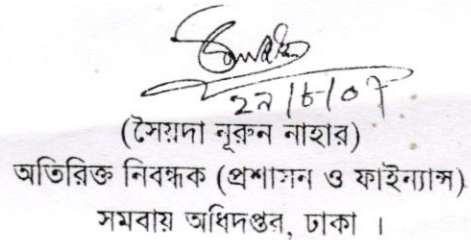 ২৯/৮/০৭
(সৈয়দা নূরুন নাহার)
অতিরিক্ত নিবন্ধক (প্রশাসন ও ফাইন্যান্স)
সমবায় অধিদপ্তর, ঢাকা ।